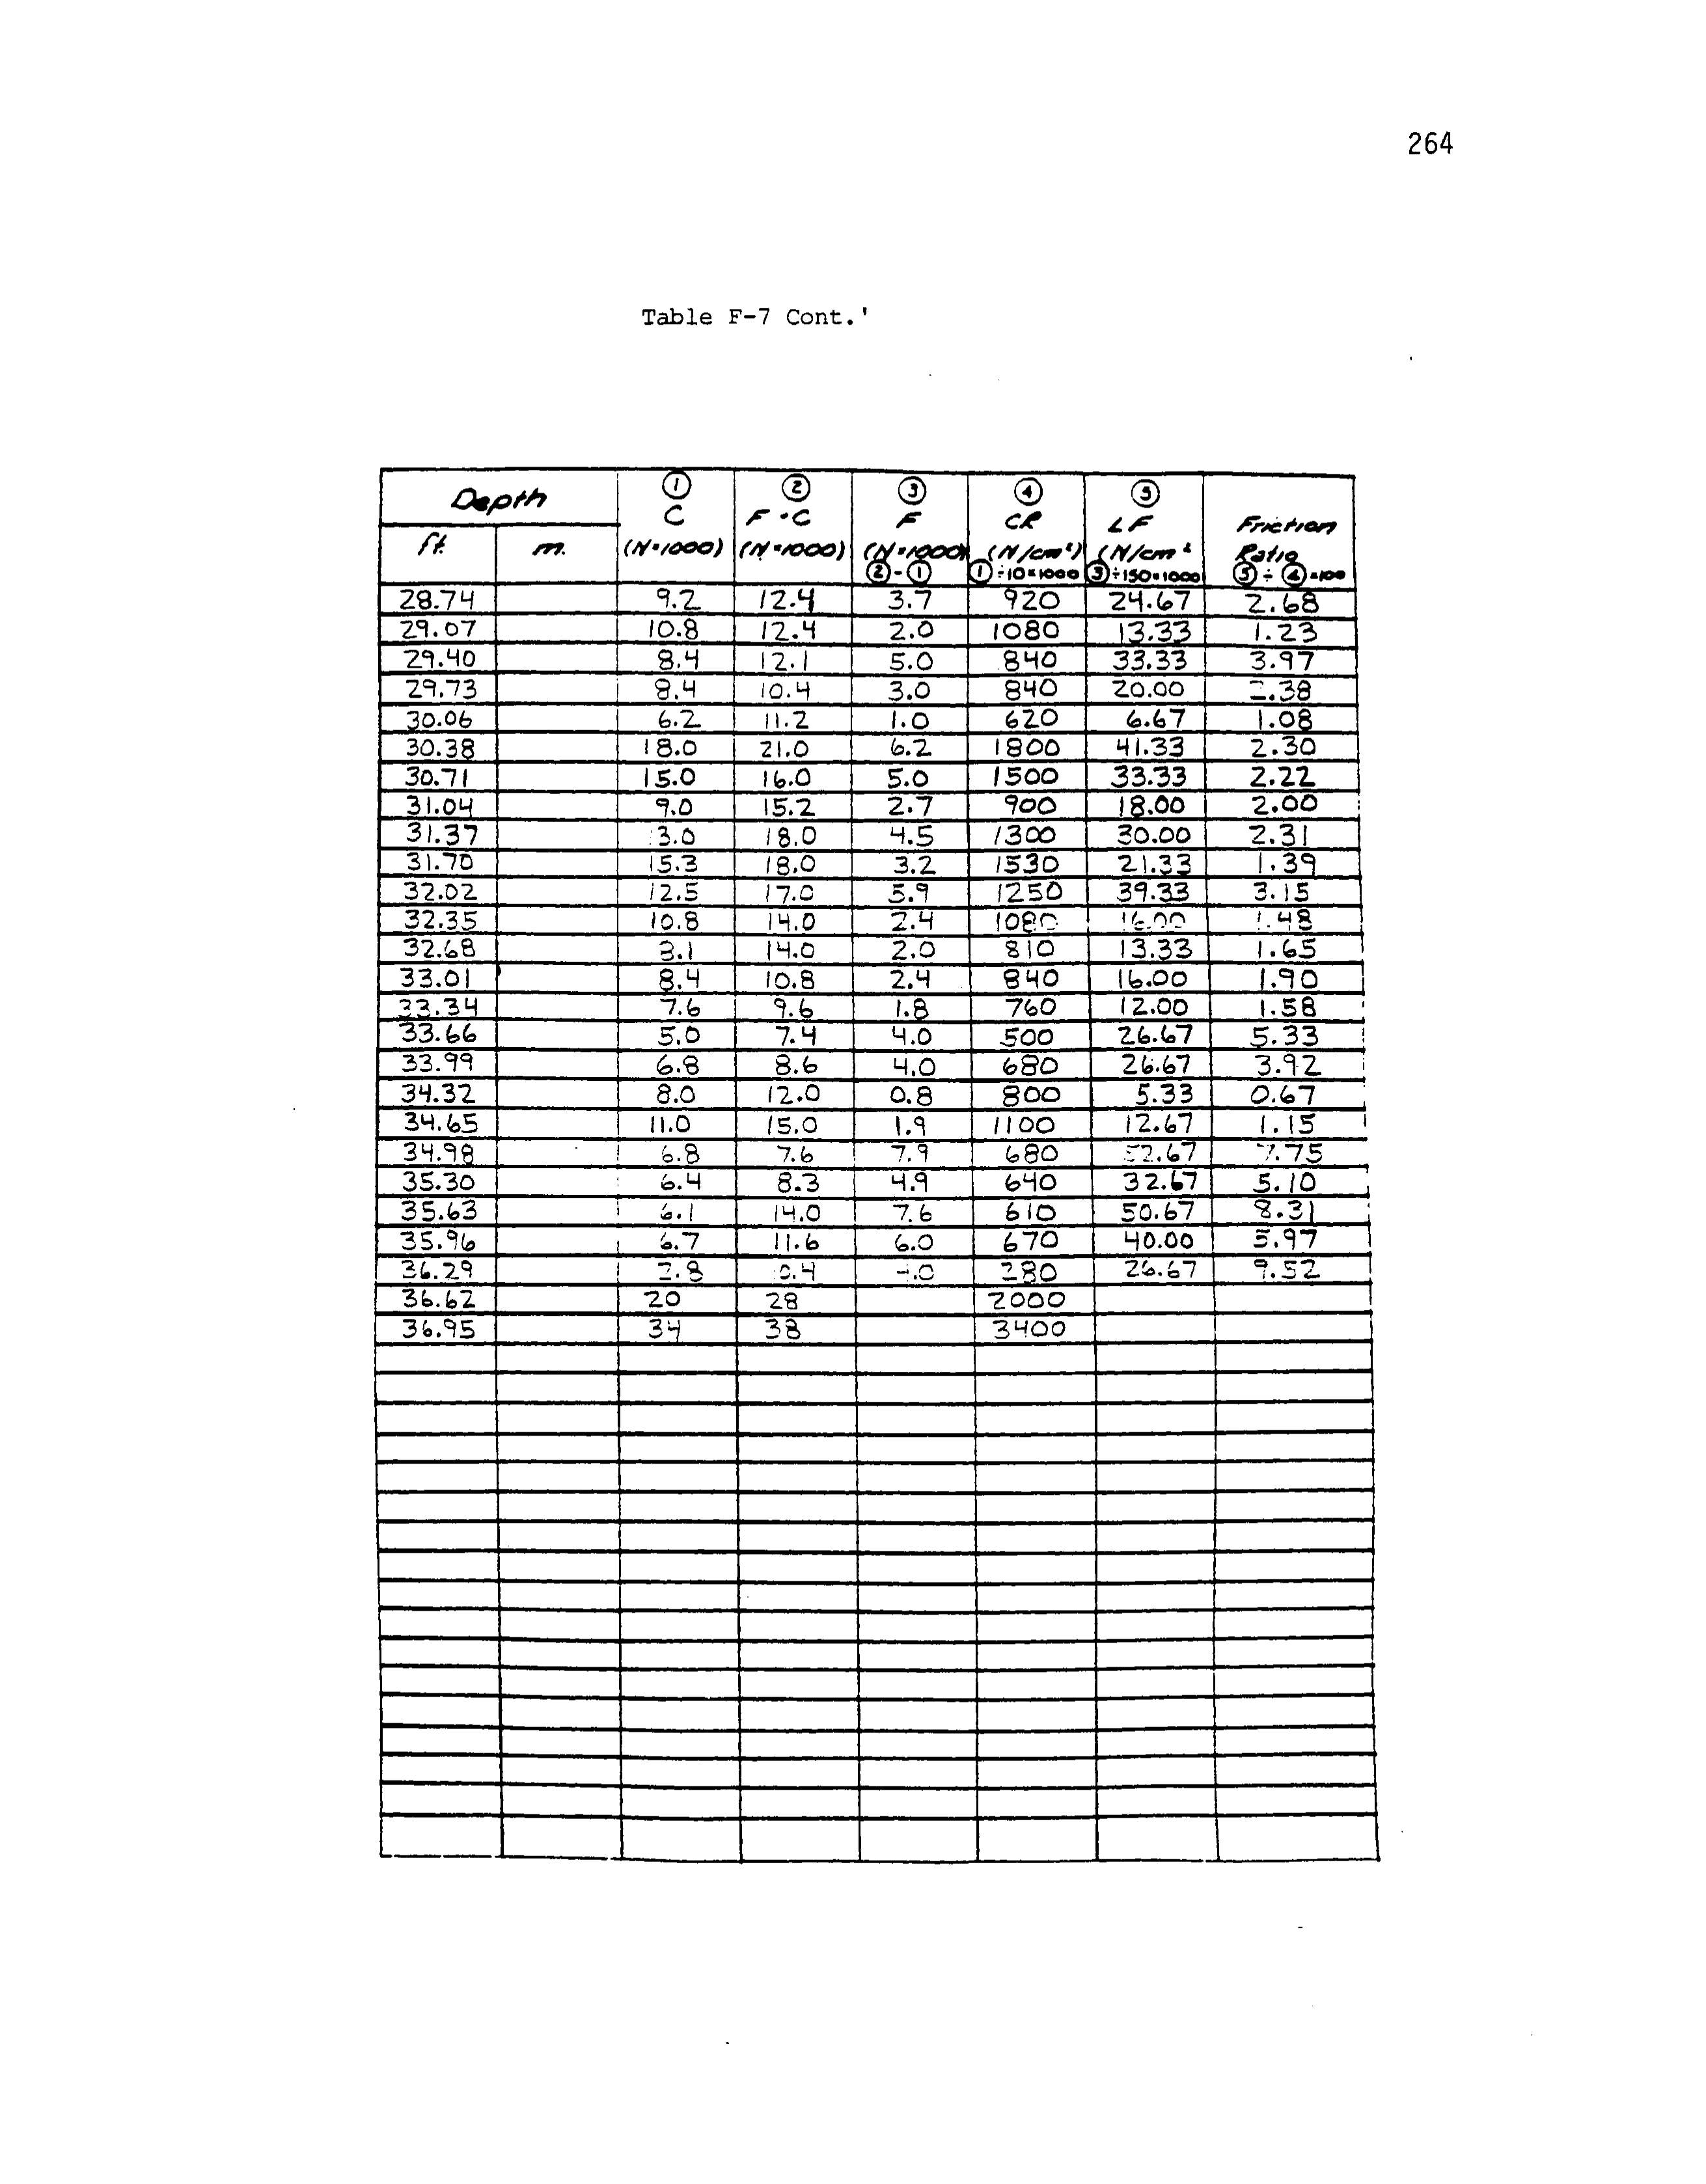 264
Table F-7 Cont.'
Depth ① ② ③ ④ ⑤
C F+C F CR LF Friction
ft. m. (N×1000) (N×1000) (N×1000) (N/cm²) (N/cm² Ratio
②-① ①÷10×1000 ③÷150×1000 ⑤÷④×100
28.74 9.2 12.4 3.7 920 24.67 2.68
29.07 10.8 12.4 2.0 1080 13.33 1.23
29.40 8.4 12.1 5.0 840 33.33 3.97
29.73 8.4 10.4 3.0 840 20.00 2.38
30.06 6.2 11.2 1.0 620 6.67 1.08
30.38 18.0 21.0 6.2 1800 41.33 2.30
30.71 15.0 16.0 5.0 1500 33.33 2.22
31.04 9.0 15.2 2.7 900 18.00 2.00
31.37 13.0 18.0 4.5 1300 30.00 2.31
31.70 15.3 18.0 3.2 1530 21.33 1.39
32.02 12.5 17.0 5.9 1250 39.33 3.15
32.35 10.8 14.0 2.4 1080 16.00 1.48
32.68 8.1 14.0 2.0 810 13.33 1.65
33.01 8.4 10.8 2.4 840 16.00 1.90
33.34 7.6 9.6 1.8 760 12.00 1.58
33.66 5.0 7.4 4.0 500 26.67 5.33
33.99 6.8 8.6 4.0 680 26.67 3.92
34.32 8.0 12.0 0.8 800 5.33 0.67
34.65 11.0 15.0 1.9 1100 12.67 1.15
34.98 6.8 7.6 7.9 680 52.67 7.75
35.30 6.4 8.3 4.9 640 32.67 5.10
35.63 6.1 14.0 7.6 610 50.67 8.31
35.96 6.7 11.6 6.0 670 40.00 5.97
36.29 2.8 4.0 280 26.67 9.52
36.62 20 28 2000
36.95 34 38 3400